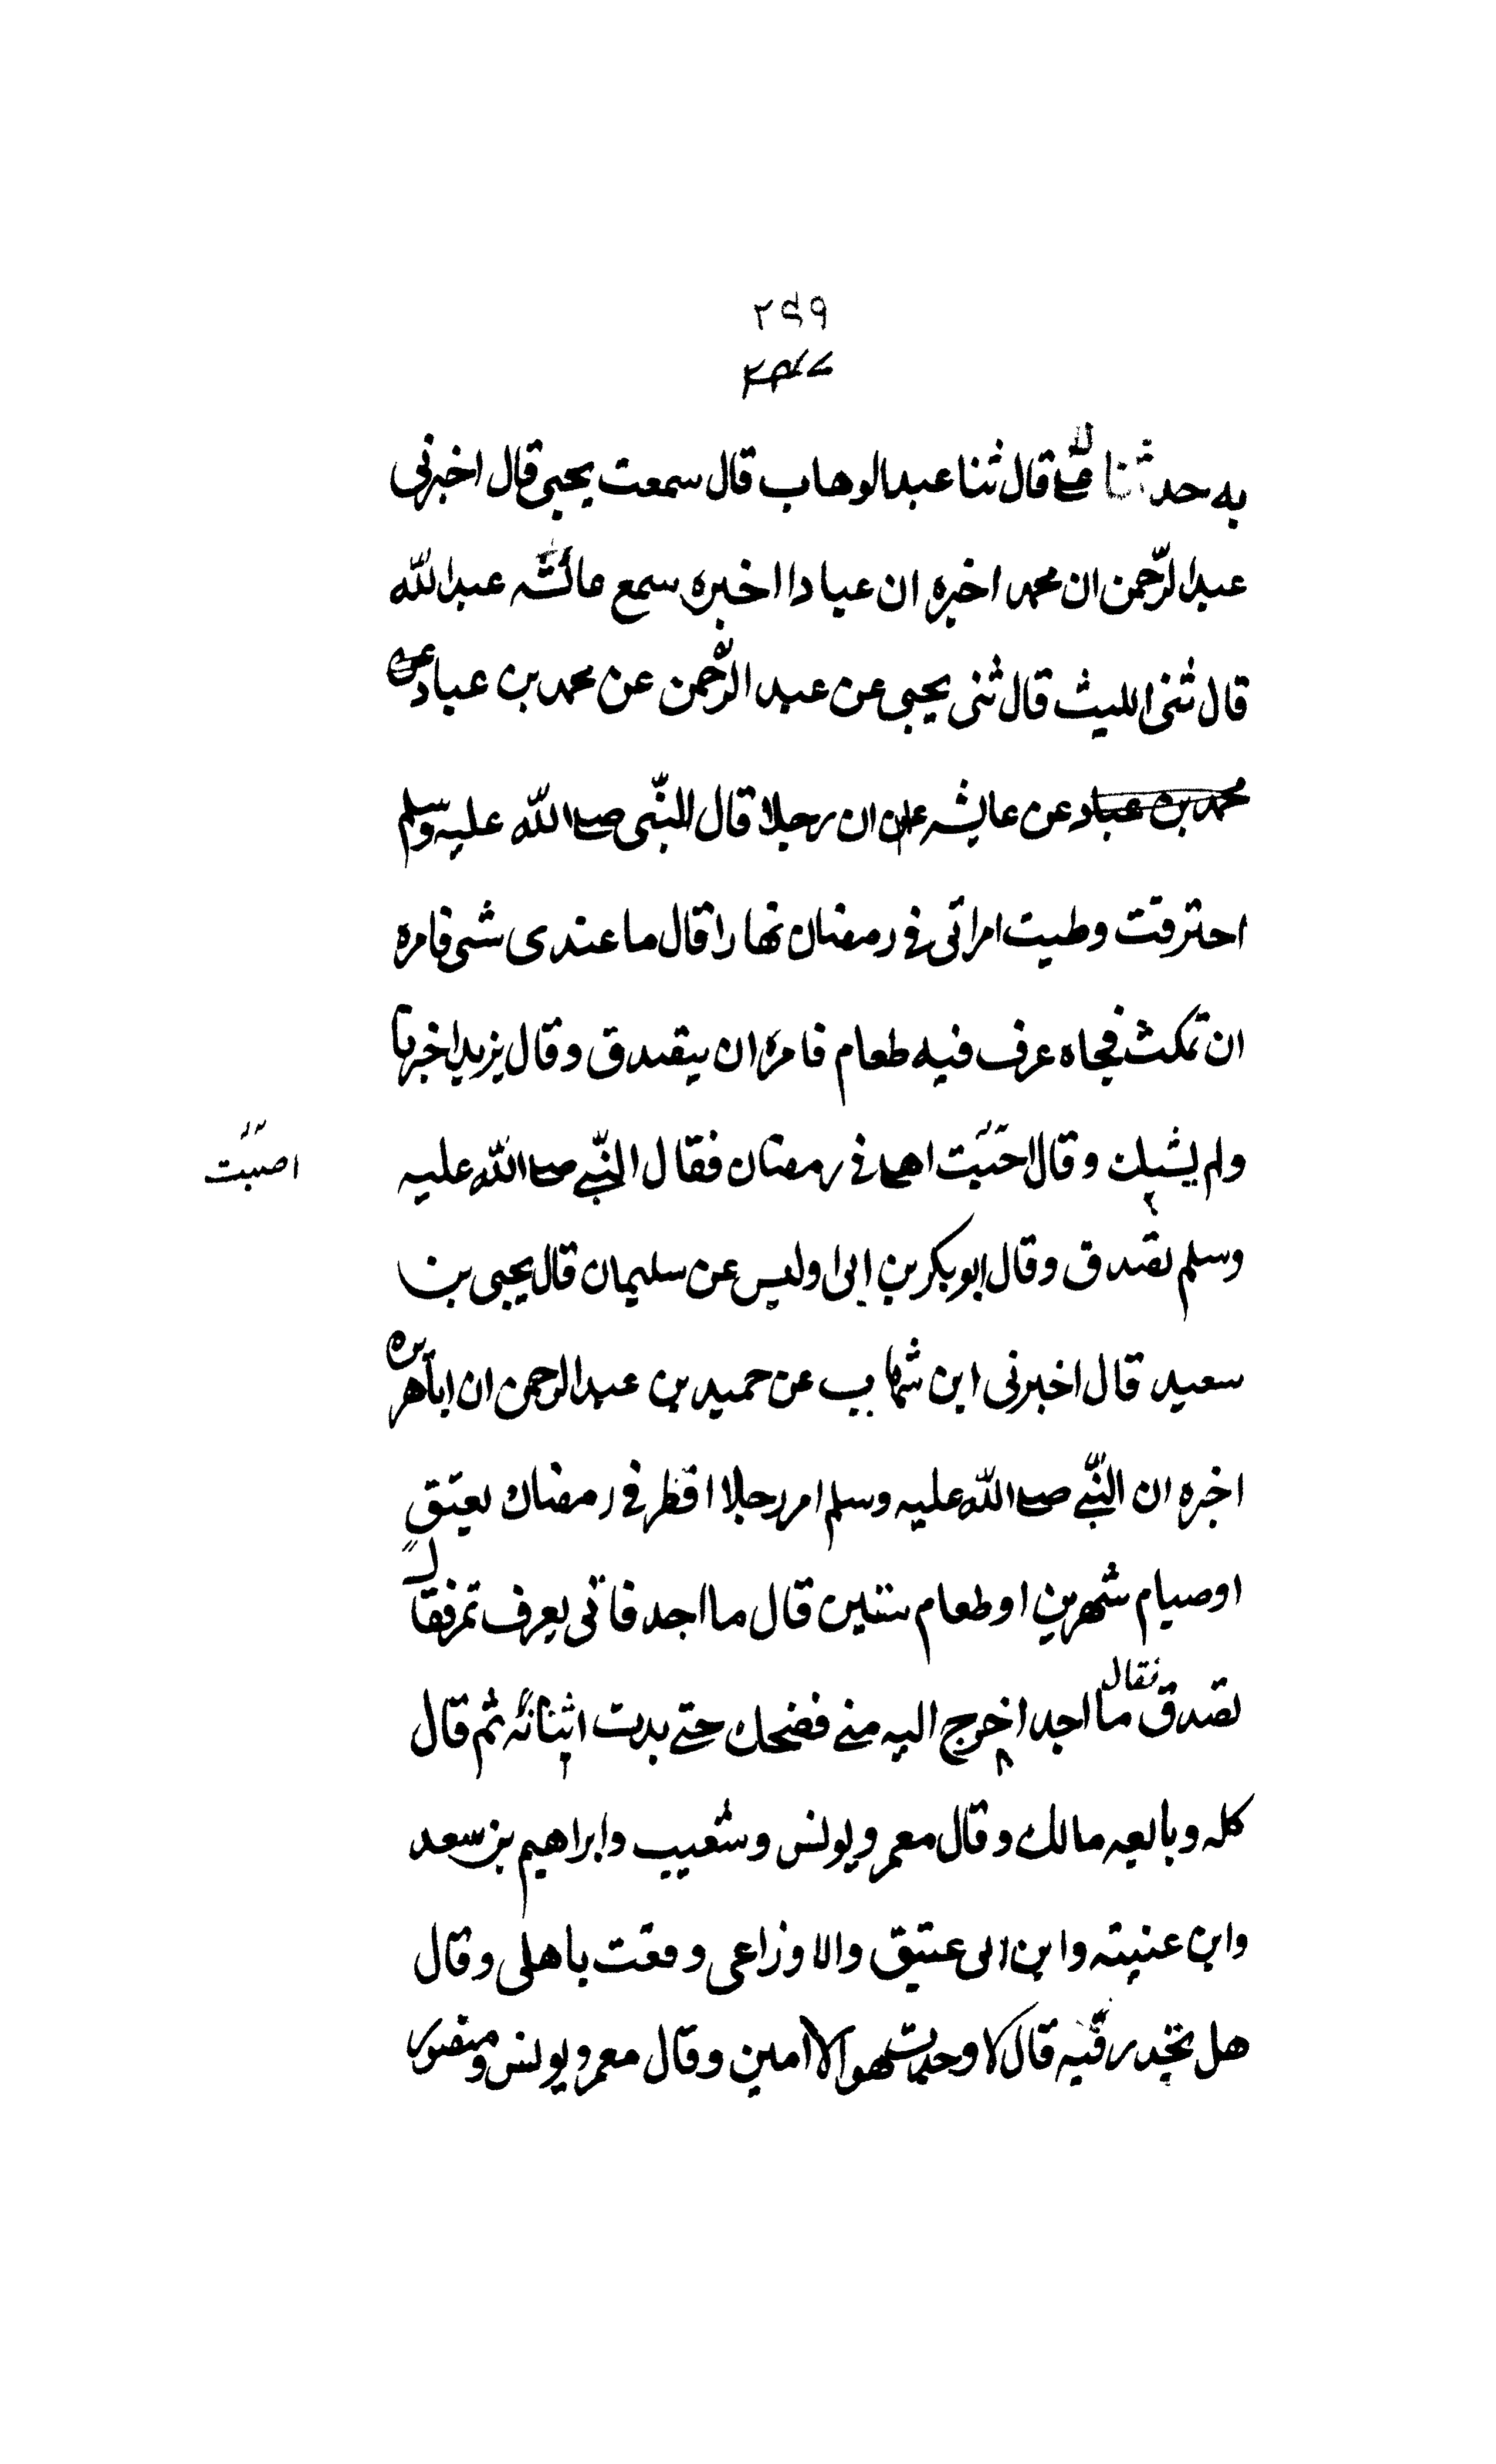 ٢٤٩
به حدثنا قال ثنا عبدالوهاب قال سمعت يحيى قال اخبرنى
عبدالرّحمن ان محمد اخبره ان عبادا اخبره سمع عائشه عبدالله
قال ثنى الليث قال ثنى يحيى عن عبد الرّحمن عن محمد بن عباد عن
محمد بن عباد عن عايشه ان رجلا قال للنّبى صلى الله عليه وسلم
احترقت وطيت امراتى فى رمضان نهارا قال ما عندى شى فامره
ان تمكث فجاه عرف فيه طعام فامره ان يتصدق وقال يزيد اخبرنا
ولم يشبك وقال احتبت اهلى فى رمضان فقال النّبى صلى الله عليه
اصبت
وسلم تصدق وقال ابو بكر بن ابى اوليس عن سليمان قال يحيى بن
سعيد قال اخبرنى ابن شهاب عن حميد بن عبدالرحمن ان اباهريره
اخبره ان النّبى صلى الله عليه وسلم امر رجلا افطر فى رمضان بعتق
او صيام شهرين او طعام ستين قال ما اجد فاتى بعرف تمر فقال
تصدق فقال ما اجد اخرج اليه منى فضحك حتى بدت اثنائه ثم قال
كله وبالعه مالك وقال معمر ويونس وشعيب وابراهيم بن سعد
وابن عنيته وابن ابى عتيق والاوزاعى وقعت باهلى وقال
هل تجد رقبه قال لا وحديث هوالا امين وقال معمر ويونس ومنصور